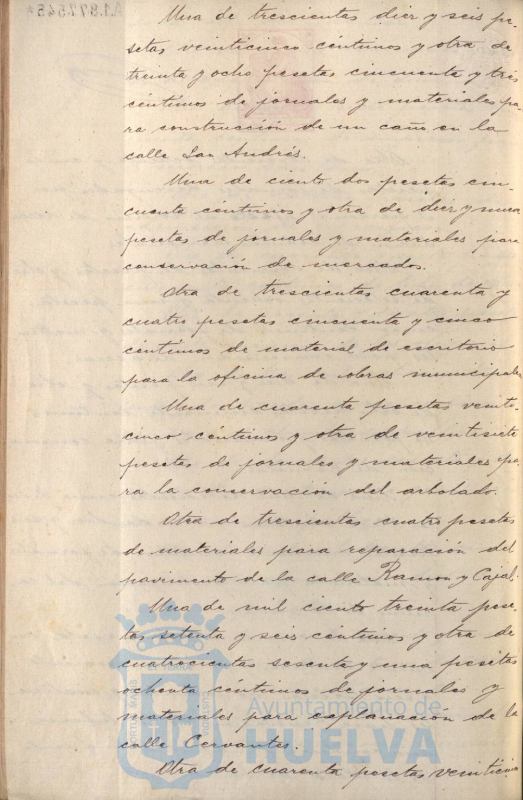 Una de trescientas diez y seis pe-
setas veinticinco céntimos y otra de
treinta y ocho pesetas cincuenta y tres
céntimos de jornales y materiales pa-
ra construcción de un caño en la
calle San Andrés.
Una de ciento dos pesetas cin-
cuenta céntimos y otra de diez y nueve
pesetas de jornales y materiales para
conservación de mercados.
Otra de trescientas cuarenta y
cuatro pesetas cincuenta y cinco
céntimos de material de escritorio
para la oficina de obras municipales
Una de cuarenta pesetas veinti-
cinco céntimos y otra de veintisiete
pesetas de jornales y materiales pa-
ra la conservación del arbolado.
Otra de trescientas cuatro pesetas
de materiales para reparación del
pavimento de la calle Ramon y Cajal.
Una de mil ciento treinta pese-
tas setenta y seis céntimos y otra de
cuatrocientas sesenta y una pesetas
ochenta céntimos de jornales y
materiales para explanación de la
calle Cervantes.
Otra de cuarenta pesetas veinticinco
Ayuntamiento de
HUELVA